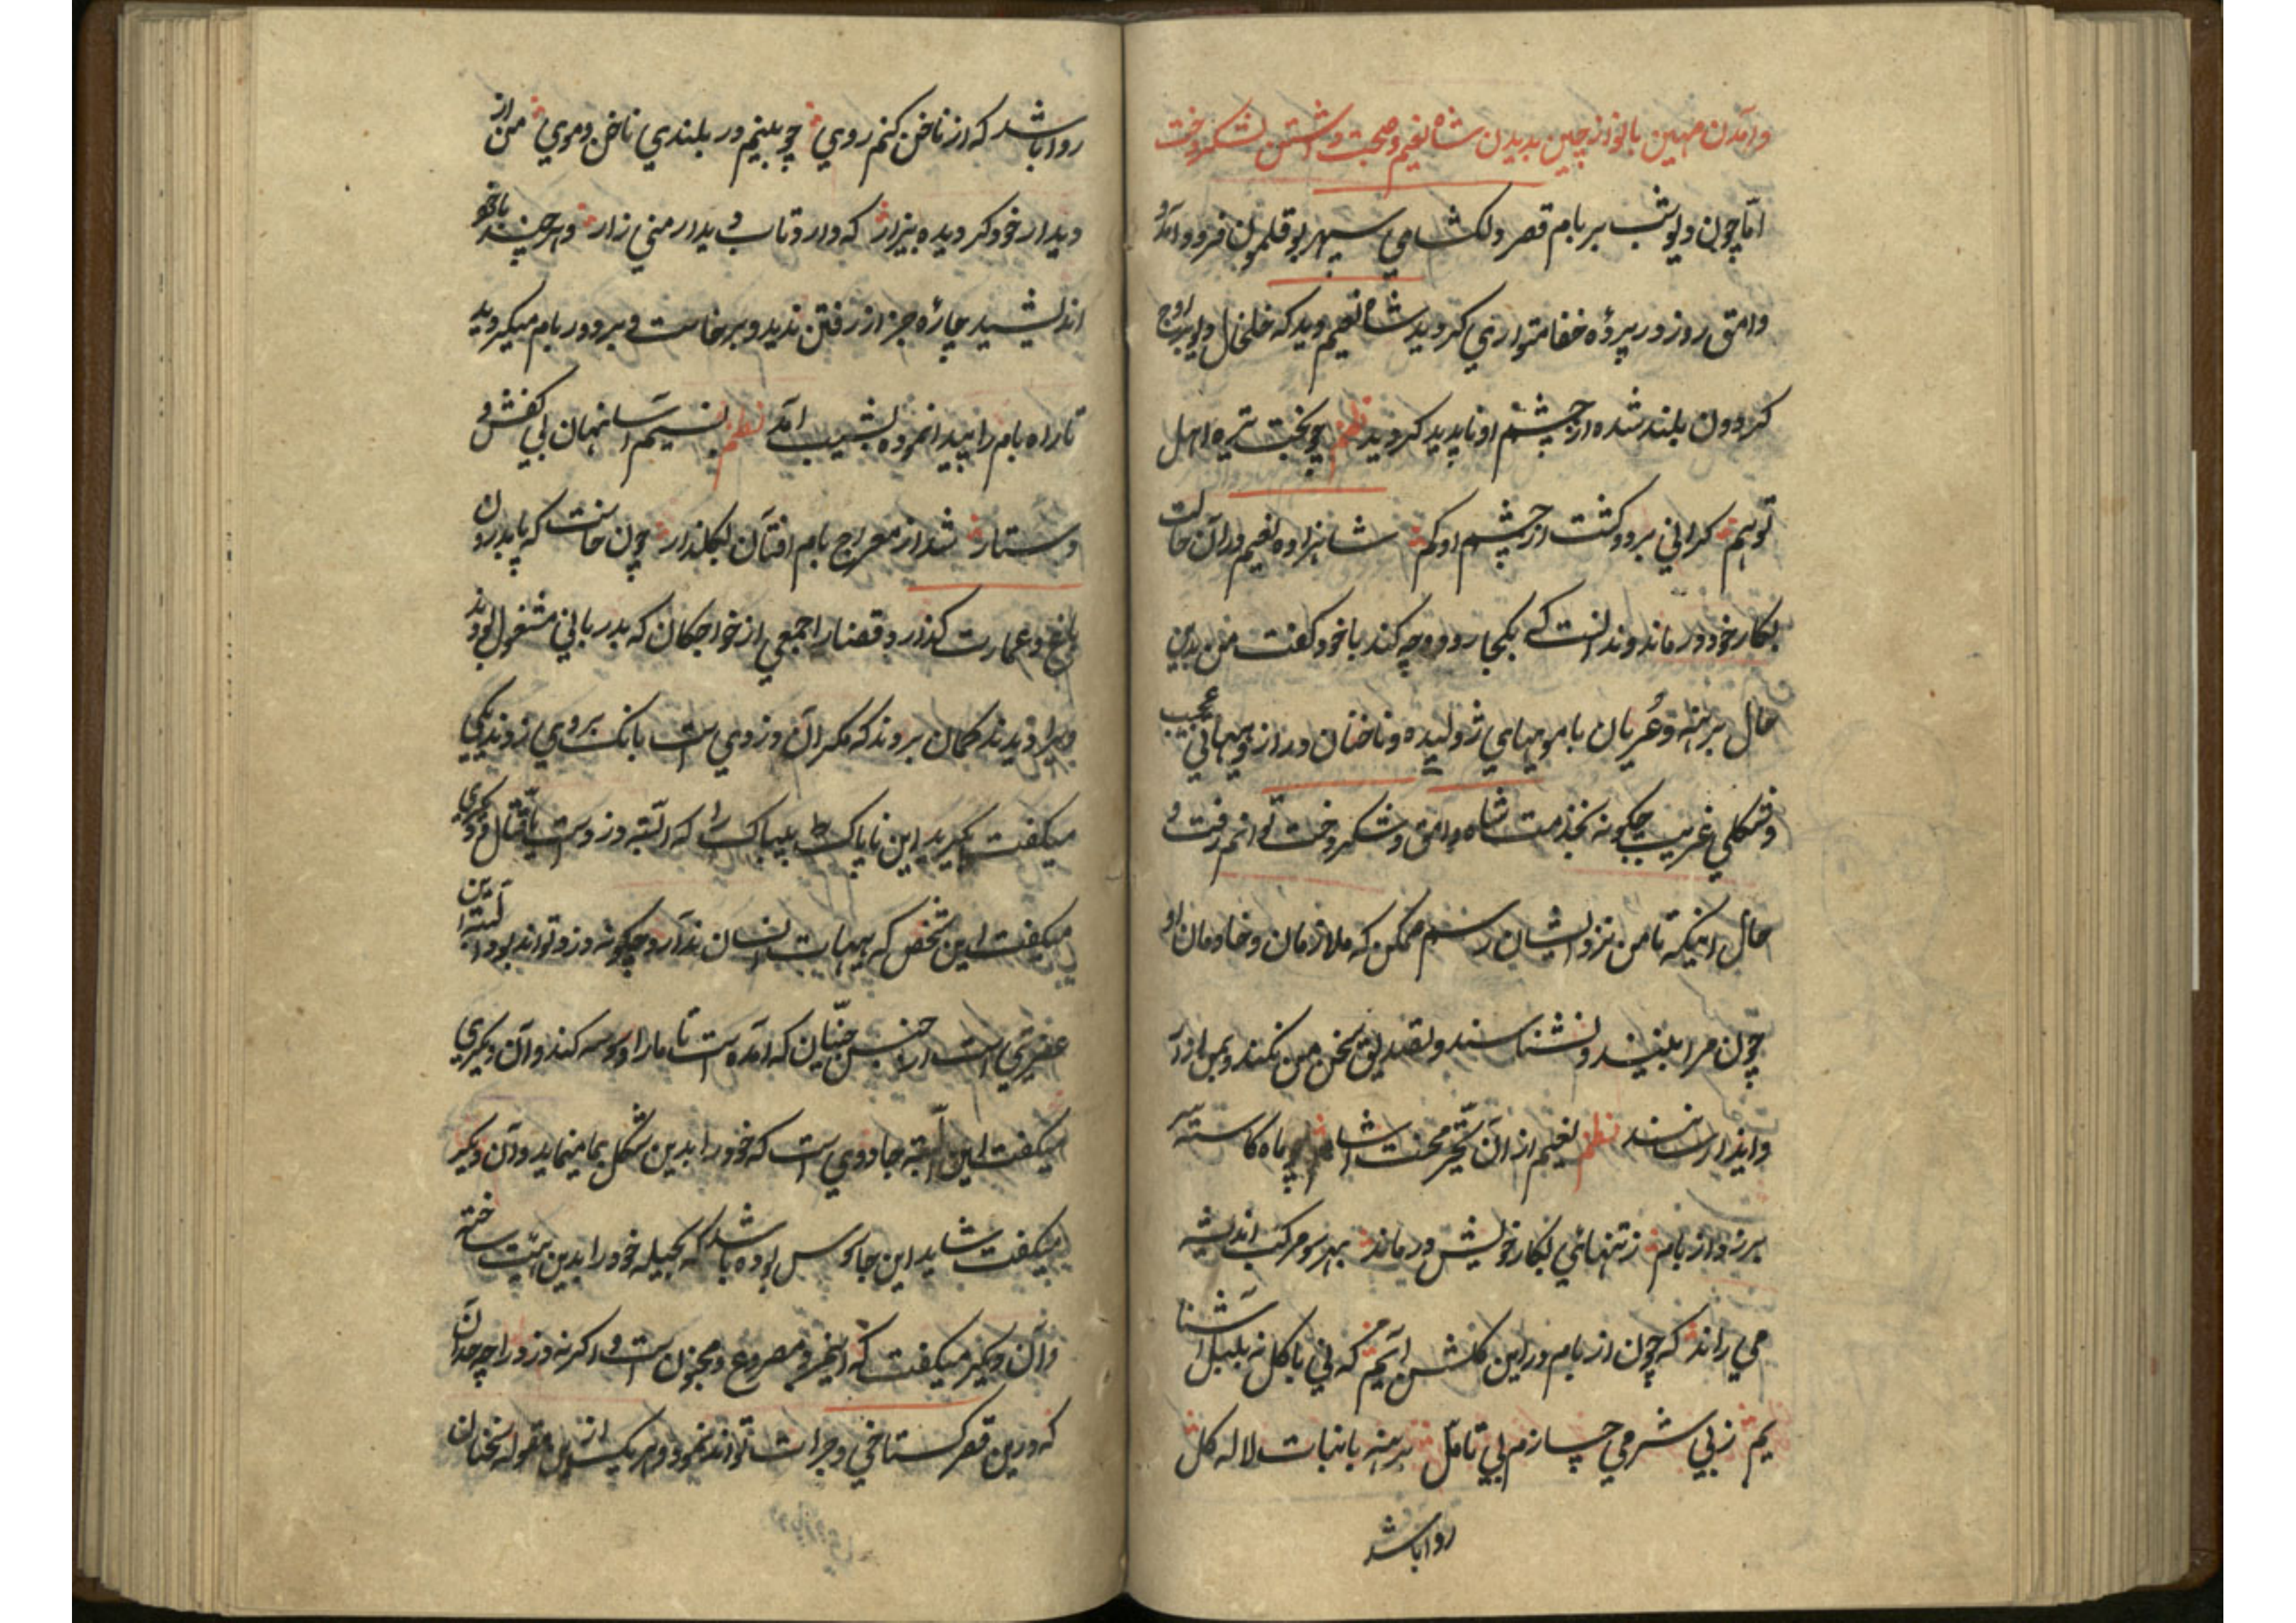 وامدن مهین بانو از چین بدیدن شاه نعیم و صحبت داشتن لشکروخت
امّا چون دیو شب بر بام قصر دلکشای سپهر بوقلمون فرود آمد و
وامق روز در پرده خفا متواری کردید شاه نعیم دید که خلخال دیو بر اوج
کردون بلند شده از چشم او ناپدید کردید نظم چو بخت تیره اهل
توهم کرانی برد و کشت از چشم او کم شاهزاده نعیم در آن حالت
بکار خود درماند و ندانست که بکجا رود و چه کند با خود کفت من بدین
حال برهنه و عُریان با مویهای ژولیده و ناخنان دراز و هیهاتی عجیب
و شکلی غریب چکونه بخدمت شاه وامق و شکروخت توانم رفت و
حال اینکه تا من نزد ایشان رسم ممکن که ملازمان و خادمان او
چون مرا بینند و نشناسند و تصدیق سخن من نکنند و بمن ازار
و ایذا رسانند نظم نعیم از آن تحیّر محنت انشام چو ماه کاسته سر
برزد از بام ز تنهائی بکار خویش درماند بهر سو مرکب اندیشه
می راند که چون از بام در این کلشن آیم که نی با کل نه بلبل آشنا
یم ز بی شرمی چسازم بی تامّل برهنه با نبات لاله کل
روا باشد
روا باشد که از ناخن کنم روی چو بینم در بلندی ناخن و موی من از
دیدار خود کردیده بیزار که دارد تاب دیدار منی زار و هر چند با خود
اندیشید چارۀ جز از رفتن ندید و برخاست و بر دور بام میکردید
تا راه بام را پیدا نموده بشیب امد نظم نسیم آسا نهان بی کفش و
دستار شد از معراج بام افتان بکلذار چون خاست که پا بدرون
باغ و عمارت کذارد قضا را جمعی از خواجکان که بدربانی مشغول بودند
ویرا دیدند کمان بردند که مکر آن دزدی است بانک بروی زدند یکی
میکفت بکیرید این ناپاک بیباک را که البّته دزد است یا قتّال و دیکری
میکفت این شخص که بهیات انسان ندارد چکونه دزد تواند بود البّته این
عفریتی است از جنس جنّیان که آمده است تا ما را وسوسه کند و آن دیکری
میکفت این البّته جادوی است که خود را بدین شکل بما مینماید و آن دیکر
میکفت شاید این جاسوس بوده باشد که بحیله خود را بدین هیّت ساخته
و آن دیکر میکفت که اینمرد مصروع و مجنون است و اکر نه دزد را چه حد آن
که درین قصر کستاخی و جرات تواند نمود و هر یک ازین مقوله سخنان